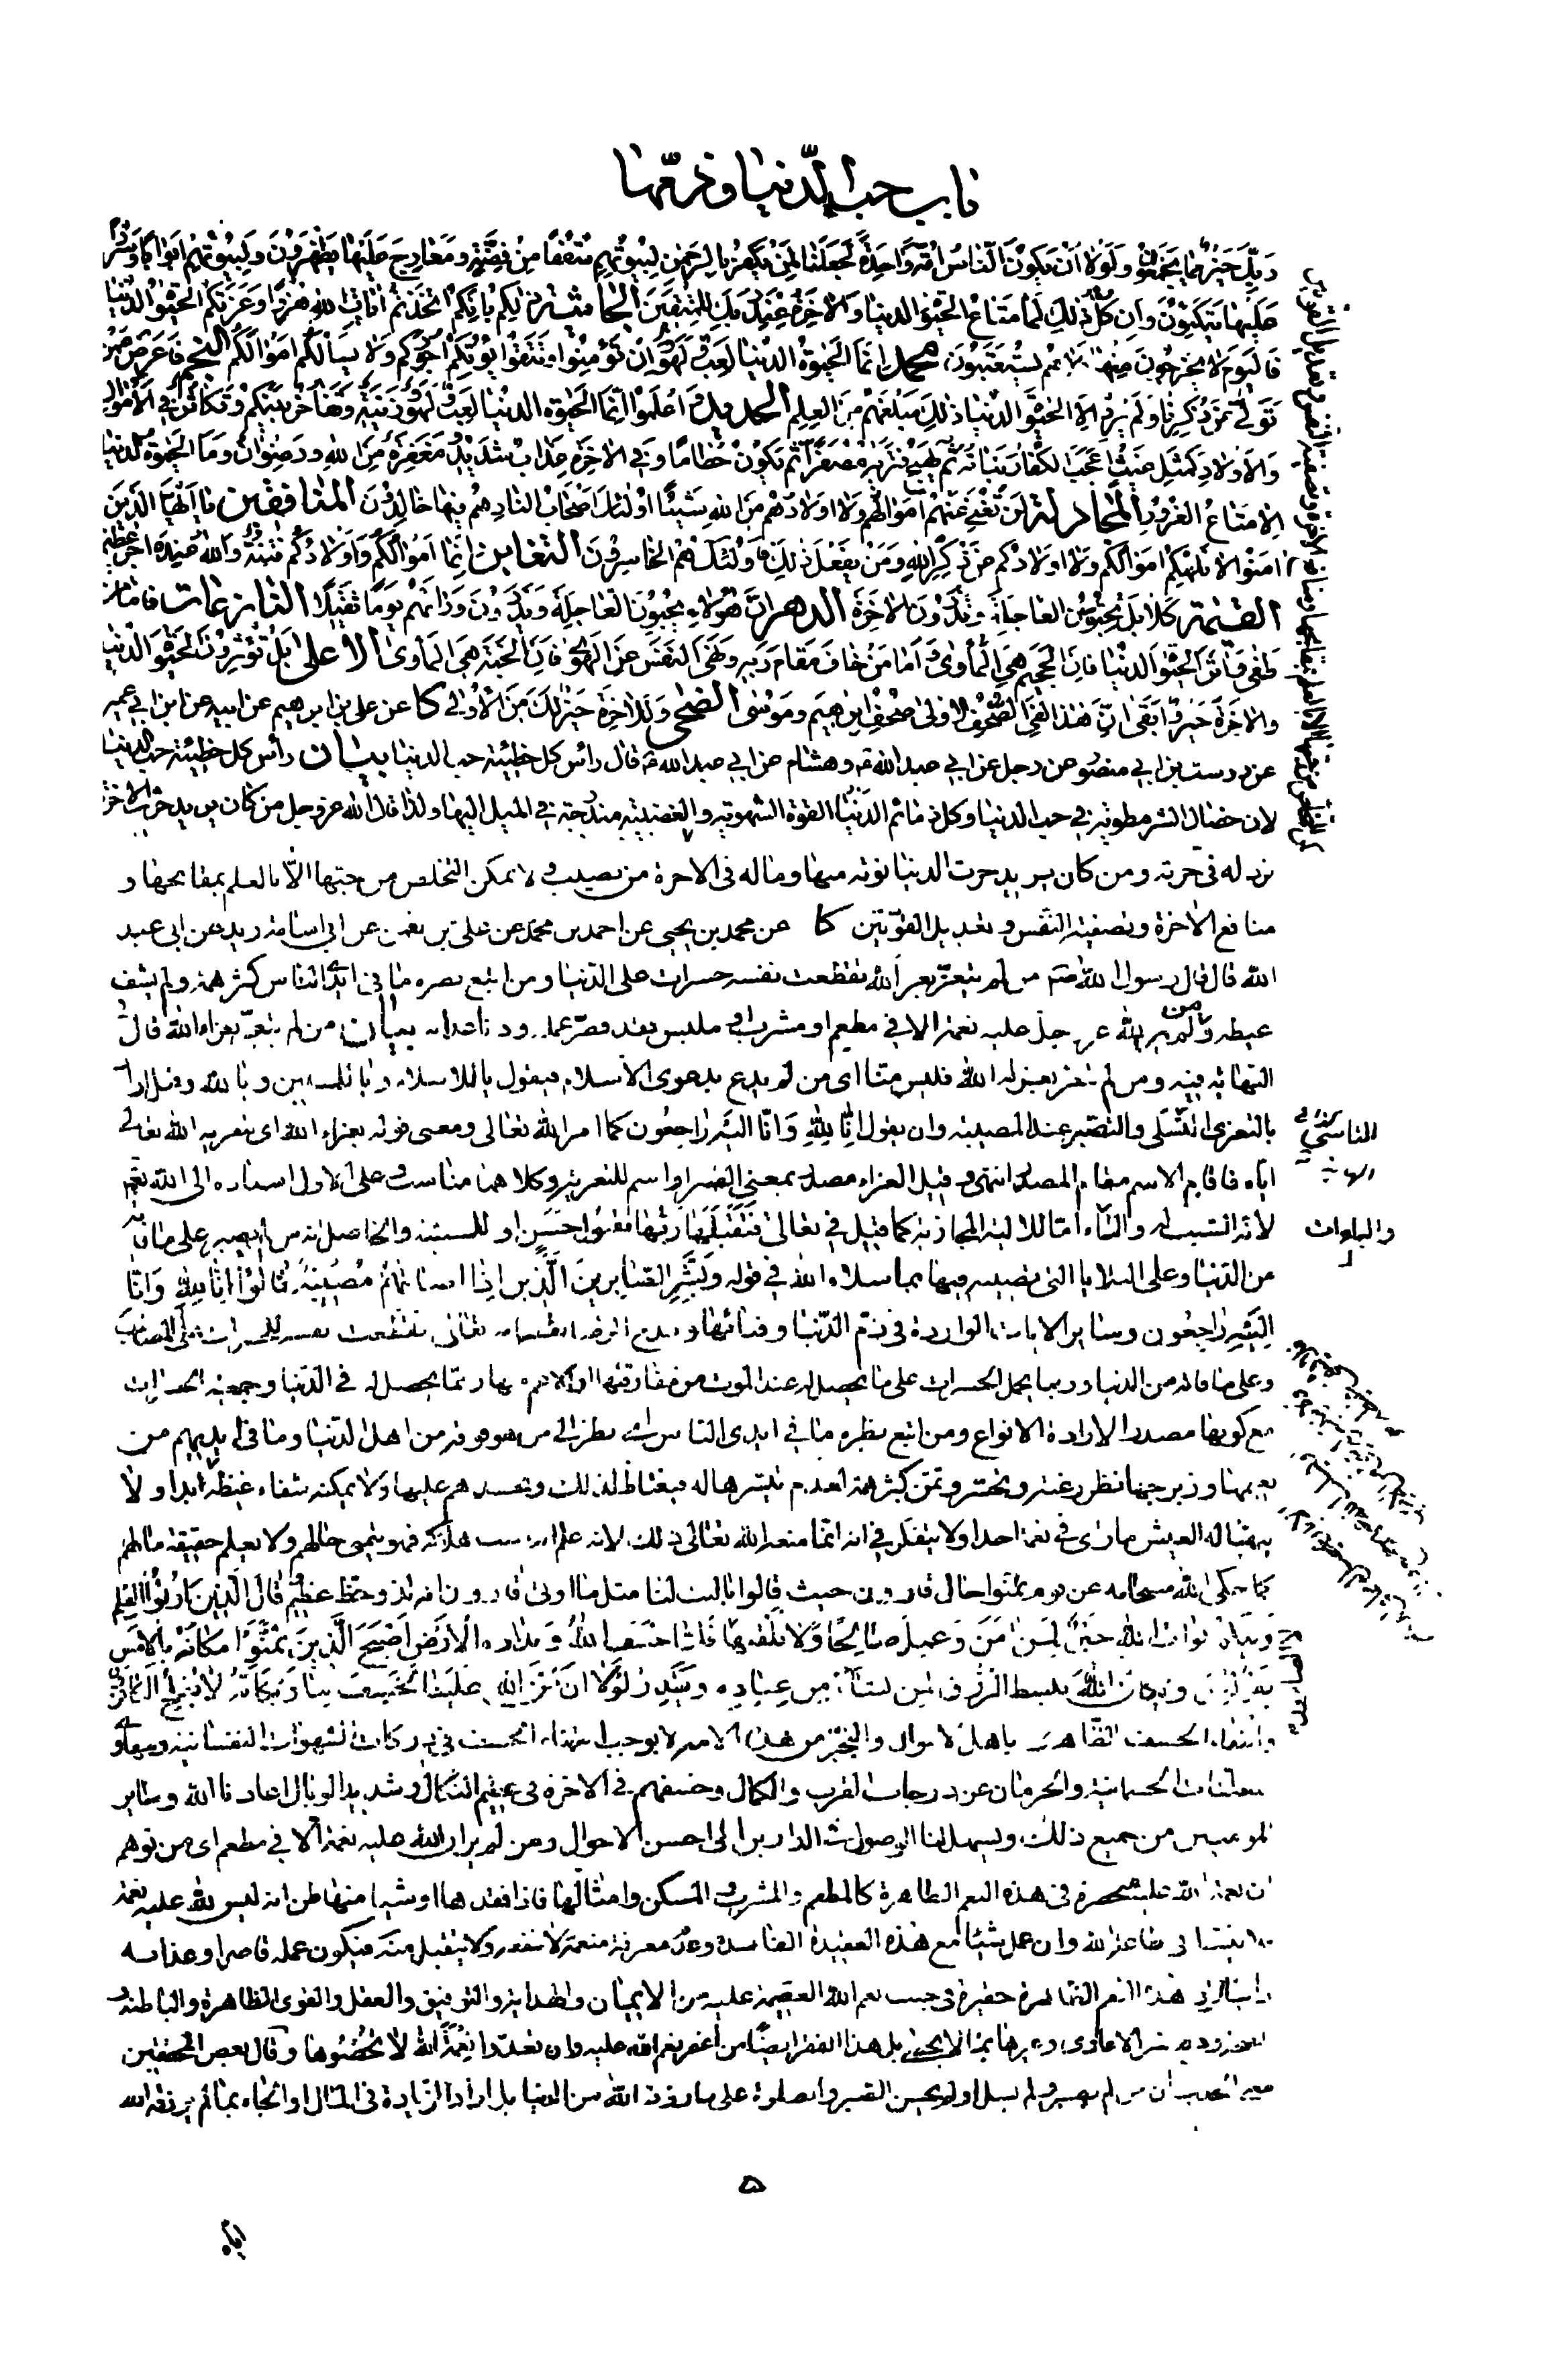 باب حب الدنيا وذمّها
ربّك خير مما يجمعون ولولا ان يكون الناس امّة واحدة لجعلنا لمن يكفر بالرحمن لبيوتهم سقفًا من فضّة ومعارج عليها يظهرون ولبيوتهم ابوابًا وسررًا
عليها يتكئون وان كل ذلك لما متاع الحيوة الدنيا والاخرة عند ربك للمتقين الجاثية ذلكم بانكم اتخذتم ايات الله هزوا وغرتكم الحيوة الدنيا
فاليوم لا يخرجون منها ولا هم يستعتبون محمد انما الحيوة الدنيا لعب ولهو وان تؤمنوا وتتقوا يؤتكم اجوركم ولا يسألكم اموالكم النجم فاعرض عمن
تولى عن ذكرنا ولم يرد الا الحيوة الدنيا ذلك مبلغهم من العلم الحديد اعلموا انما الحيوة الدنيا لعب ولهو وزينة وتفاخر بينكم وتكاثر في الاموال
والاولاد كمثل غيث اعجب الكفار نباته ثم يهيج فتراه مصفرًا ثم يكون حطامًا وفي الاخرة عذاب شديد ومغفرة من الله ورضوان وما الحيوة الدنيا
الا متاع الغرور المجادلة لن تغني عنهم اموالهم ولا اولادهم من الله شيئًا اولئك اصحاب النار هم فيها خالدون المنافقين يا ايها الذين
امنوا لا تلهكم اموالكم ولا اولادكم عن ذكر الله ومن يفعل ذلك فاولئك هم الخاسرون التغابن انما اموالكم واولادكم فتنة والله عنده اجر عظيم
القيمة كلا بل تحبون العاجلة وتذرون الاخرة الدهر ان هؤلاء يحبون العاجلة ويذرون وراءهم يومًا ثقيلًا النازعات فاما من
طغى واثر الحيوة الدنيا فان الجحيم هي المأوى واما من خاف مقام ربه ونهى النفس عن الهوى فان الجنة هي المأوى الاعلى بل تؤثرون الحيوة الدنيا
والاخرة خير وابقى ان هذا لفي الصحف الاولى صحف ابرهيم وموسى الضحى وللاخرة خير لك من الاولى كا عن علي بن ابرهيم عن ابيه عن ابن ابي عمير
عن درست بن ابي منصور عن رجل عن ابي عبد الله ع وهشام عن ابي عبد الله ع قال رأس كل خطيئة حب الدنيا بيان رأس كل خطيئة حب الدنيا
لان خصال الشر مطوية في حب الدنيا وكل ذمائم الدنيا القوة الشهوية والغضبية مندرجة في الميل اليها ولذا قال الله عز وجل من كان يريد حرث الاخرة
نزد له في حرثه ومن كان يريد حرث الدنيا نؤته منها وما له في الاخرة من نصيب ولا يمكن التخلص من حبها الا بالعلم بمقابحها و
منافع الاخرة وتصفية النفس وتعديل القوتين كا عن محمد بن يحيى عن احمد بن محمد عن علي بن نعمن عن ابي اسامة زيد عن ابي عبد
الله قال قال رسول الله صم من لم يتعزّ بعزاء الله تقطعت نفسه حسرات على الدنيا ومن اتبع بصره ما في ايدي الناس كثر همه ولم يشف
غيظه ومن لم ير لله عز وجل عليه نعمة الا في مطعم او مشرب او ملبس فقد قصر عمله ودنا عذابه بيان من لم يتعزّ بعزاء الله قال
النهاية فيه ومن لم يتعز بعزاء الله فليس منّا اي من لم يدع بدعوى الاسلام فيقول يا للاسلام ويا للمسلمين ويا لله وقيل اراد
بالتعزي التسلي والتصبر عند المصيبة وان يقول انا لله وانّا اليه راجعون كما امر الله تعالى ومعنى قوله بعزاء الله اي بتعزية الله تعالى
اياه فاقام الاسم مقام المصدر انتهى وقيل العزاء مصدر بمعنى الصبر او اسم للتعزية وكلاهما مناسب وعلى الاول اسناده الى الله تعم
لانه السبب له والباء اما للالية المجازية كما قيل في تعالى فتقبلها ربها بقبول حسن او للسببية والحاصل انه من لم يصبر على ما فاته
من الدنيا وعلى البلايا التي تصيبه فيها بما سلاه الله في قوله وبشر الصابرين الذين اذا اصابتهم مصيبة قالوا انا لله وانا
اليه راجعون وسائر الايات الواردة في ذم الدنيا وفنائها تقطعت نفسه للحسرات على المصائب
وعلى ما فاته من الدنيا وربما يحمل الحسرات على ما يحصل له عند الموت من مفارقتها في الدنيا وجمعية الحسرات
مع كونها مصدرا لارادة الانواع ومن اتبع بصره ما في ايدي الناس اي نظر الى من هو فوقه من اهل الدنيا وما في ايديهم من
نعيمها وزبرجها نظر رغبة وتحسر وتمن كثر همه لعدم تيسرها له فيغتاظ لذلك ويحسدهم عليها ولا يمكنه شفاء غيظه ابدا ولا
يتهنا له العيش ما راى في نعمة احدا ولا يتفكر في انه انما منعه الله تعالى ذلك لانه علم انه سبب هلاكه فهو يتمنى حالهم ولا يعلم حقيقة مالهم
كما حكى الله سبحانه عن قوم تمنوا حال قارون حيث قالوا يا ليت لنا مثل ما اوتي قارون انه لذو حظ عظيم قال الذين اوتوا العلم
ويلكم ثواب الله خير لمن امن وعمل صالحًا ولا يلقيها فلما خسف الله وبداره الارض اصبح الذين تمنوا مكانه بالامس
يقولون ويكان الله يبسط الرزق لمن يشاء من عباده ويقدر لولا ان من الله علينا لخسف بنا ويكانه لا يفلح الكافرون
وانتفاء الخسف الظاهر باهل الاموال والتبختر من هذه الامة لا يوجب انتفاء الخسف في دركات الشهوات النفسانية
التعلقات الجسمانية والحرمان عن درجات القرب والكمال وخسفهم في الاخرة في عظيم النكال وشديد الوبال اعاذنا الله وسائر
المؤمنين من جميع ذلك ويسهل لنا الوصول في الدارين الى احسن الاحوال ومن لم ير ان لله عليه نعمة الا في مطعم اي من توهم
ان نعمة الله عليه منحصرة في هذه النعم الظاهرة كالمطعم والمشرب والمسكن وامثالها فاذا فقدها او شيئا منها ظن انه ليس لله عليه نعمة
فلا ينشط في طاعة الله وان عمل شيئا مع هذه العقيدة الفاسدة وعدم معرفة منعمه لا ينفعه ولا يتقبل منه فيكون عمله قاصرا وعذابه
دانيا لان هذه النعم الظاهرة حقيرة في جنب نعم الله العظيمة عليه من الايمان والهداية والتوفيق والعقل والقوى الظاهرة والباطنة
والصحة ودفع شر الاعادي وغيرها مما لا يحصى بل هذا الفقر ايضًا من اعظم نعم الله عليه وان تعدوا نعمة الله لا تحصوها وقال بعض المحققين
معنى الحديث ان من لم يصبر ولم يسل او لم يحسن الصبر والسلوة على ما رزقه الله من الدنيا بل اراد الزيادة في المال او الجاه مما لم يرزقه الله
٥
اياه